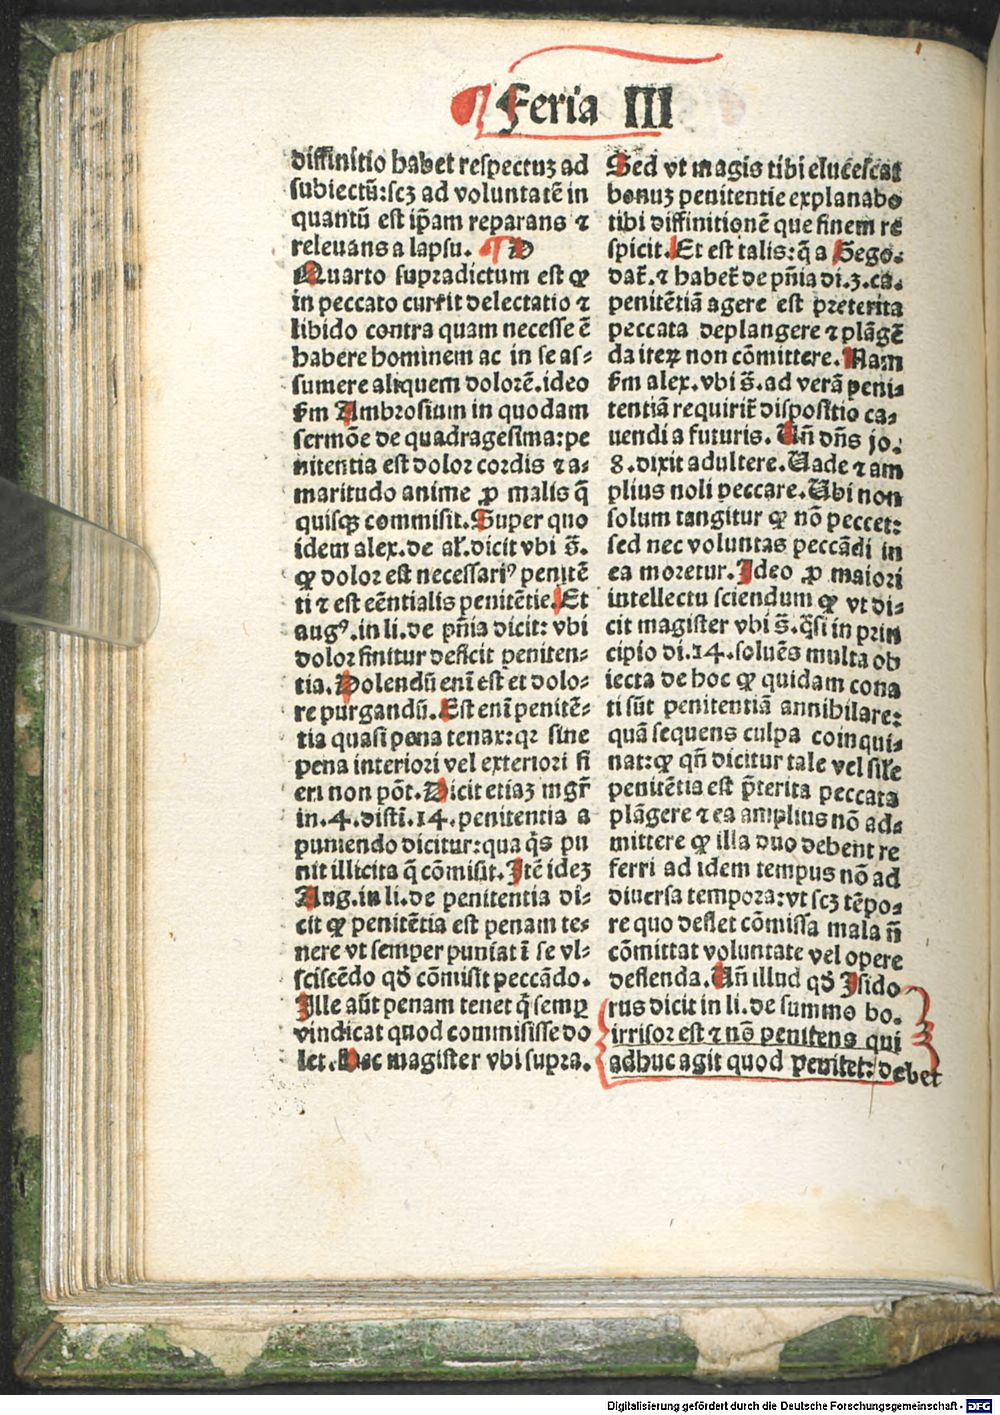 Feria III
diffinitio habet respectuʒ ad
subiectū:scʒ ad voluntatē in
quantū est ip̄am reparans ⁊
releuans a lapsu. ¶ D
Quarto supradictum est ꝙ
in peccato currit delectatio ⁊
libido contra quam necesse ē
habere hominem ac in se as⸗
sumere aliquem dolorē.ideo
ẜm Ambrosium in quodam
sermōe de quadragesima:pe
nitentia est dolor cordis ⁊ a⸗
maritudo anime ꝓ malis q̄
quisqꝫ commisit.Super quo
idem alex.de al̄.dicit vbi s̄.
ꝙ dolor est necessariꝰ penitē
ti ⁊ est eēntialis penitētie.Et
augꝰ.in li.de pn̄ia dicit: vbi
dolor finitur deficit peniten⸗
tia.Dolendū eni̅ est et dolo⸗
re purgandū.Est eni̅ penitē⸗
tia quasi pena tenax:qꝛ sine
pena interiori vel exteriori fi
eri non pōt.Dicit etiaʒ mgr̄
in.4.disti̅.14.penitentia a
puniendo dicitur:qua q̇s pu
nit illicita q̄ cōmisit.Itē ideʒ
Aug.in li.de penitentia di⸗
cit ꝙ penitētia est penam te⸗
nere vt semper puniat i̅ se vl⸗
sciscēdo qd̄ cōmisit peccādo.
Ille aūt penam tenet q̇ semꝑ
vindicat quod commisisse do
let.Hec magister vbi supra.
Sed vt magis tibi elucescat
bonuʒ penitentie explanabo
tibi diffinitionē que finem re
spicit.Et est talis:q̄ a Grego.
dat̄.⁊ habet̄ de pn̄ia di.3.ca.
penitētiā agere est preterita
peccata deplangere ⁊ plāgē
da iteꝝ non cōmittere.Nam
ẜm alex.vbi s̄.ad verā peni⸗
tentiā requirit̄ dispositio ca⸗
uendi a futuris. Un̄ dn̄s jo.
8.dixit adultere.Uade ⁊ am
plius noli peccare.Ubi non
solum tangitur ꝙ nō peccet:
sed nec voluntas peccādi in
ea moretur.Ideo ꝓ maiori
intellectu sciendum ꝙ vt di⸗
cit magister vbi s̄.q̄si in prin
cipio di.14.soluēs multa ob
iecta de hoc ꝙ quidam cona
ti sūt penitentiā annihilare:
quā sequens culpa coinqui⸗
nat:ꝙ qn̄ dicitur tale vel sile
penitētia est p̄terita peccata
plāgere ⁊ ea amplius nō ad⸗
mittere ꝙ illa duo debent re
ferri ad idem tempus nō ad
diuersa tempora:vt scʒ tēpo⸗
re quo deflet cōmissa mala n̄
cōmittat voluntate vel opere
deflenda.Un̄ illud qd̄ Isido
rus dicit in li.de summo bo.
irrisor est ⁊ nō penitens qui
adhuc agit quod penitet: debet
Digitalisierung gefördert durch die Deutsche Forschungsgemeinschaft - DFG